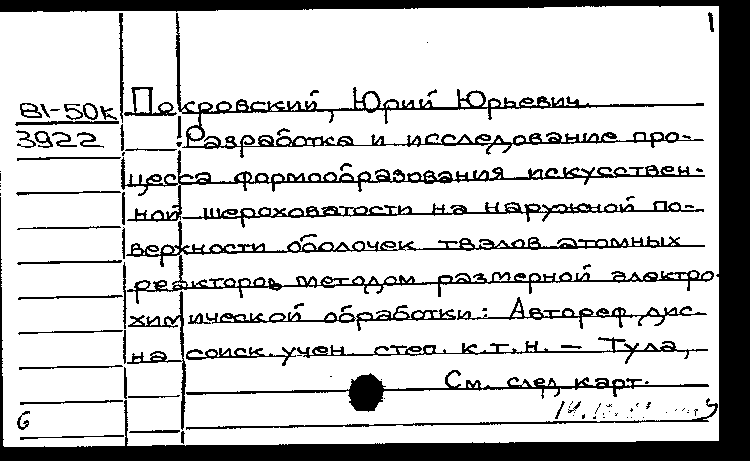 1
81-50к Покровский, Юрий Юрьевич
3922 Разработка и исследование про-
цесса формообразования искусствен-
ной шероховатости на наружной по-
верхности оболочек твэлов атомных
реакторов методом размерной электро-
химической обработки: Автореф. дис-
на соиск. учен. степ. к.т.н. – Тула,
См. след. карт.
6